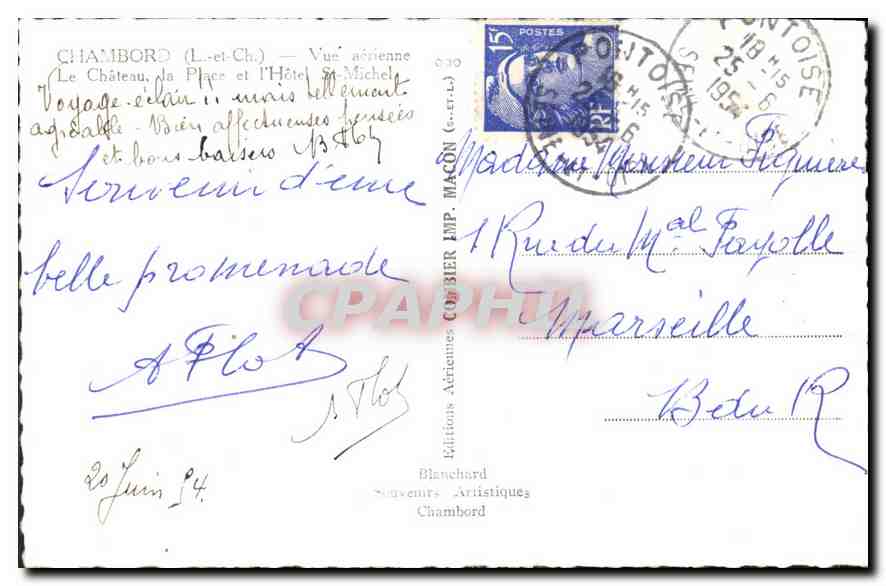 CHAMBORD (L.-et-Ch.) — Vue aérienne
Le Château, la Place et l'Hôtel St-Michel
Voyage-éclair !! mais tellement
agréable - Bien affectueuses pensées
et bons baisers
Souvenir d'une
belle promenade
A Flot
A Flot
20 Juin 54.
Editions Aériennes COMBIER IMP. MACON (S.-ET-L.)
15F
POSTES
RF
PONTOISE
18 H 15
25 - 6
1954
PONTOISE
18 H 15
25 - 6
1954
Madame Monsieur Piguières
1 Rue du Mal Fayolle
Marseille
B du R
Blanchard
Souvenirs Artistiques
Chambord
CPAPHIL